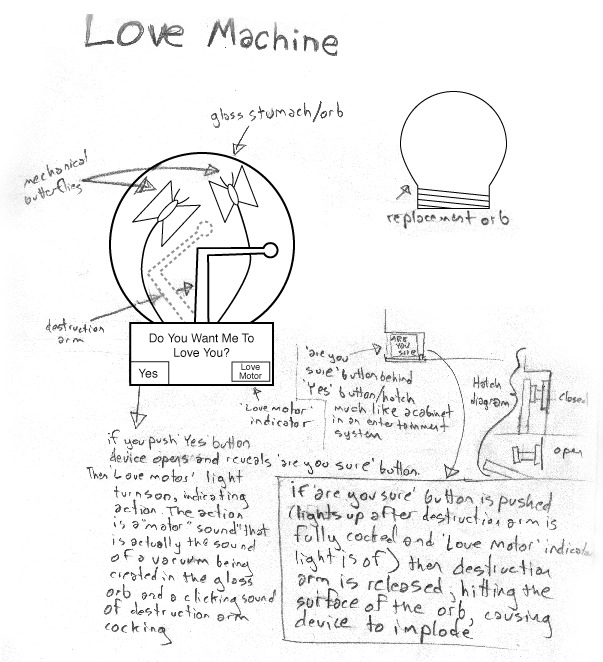 Love Machine
glass stumach/orb
mechanical
butterflies
replacement orb
destruction
arm
Do You Want Me To
Love You?
Yes
Love
Motor
'Love motor'
indicator
ARE
YOU
SURE
'are you
sure' button behind
'Yes' button/hatch
much like a cabinet
in an entertainment
system
Hatch
diagram
closed
open
if you push 'Yes' button
device opens and reveals 'are you sure' button.
Then 'Love motor' light
turns on, indicating
action. The action
is a "motor" sound "that
is actually the sound
of a vacuum being
created in the glass
orb and a clicking sound
of destruction arm
cocking
if 'are you sure' button is pushed
(lights up after destruction arm is
fully cocked and 'Love Motor' indicator
light is of) then destruction
arm is released, hitting the
surface of the orb, causing
device to implode